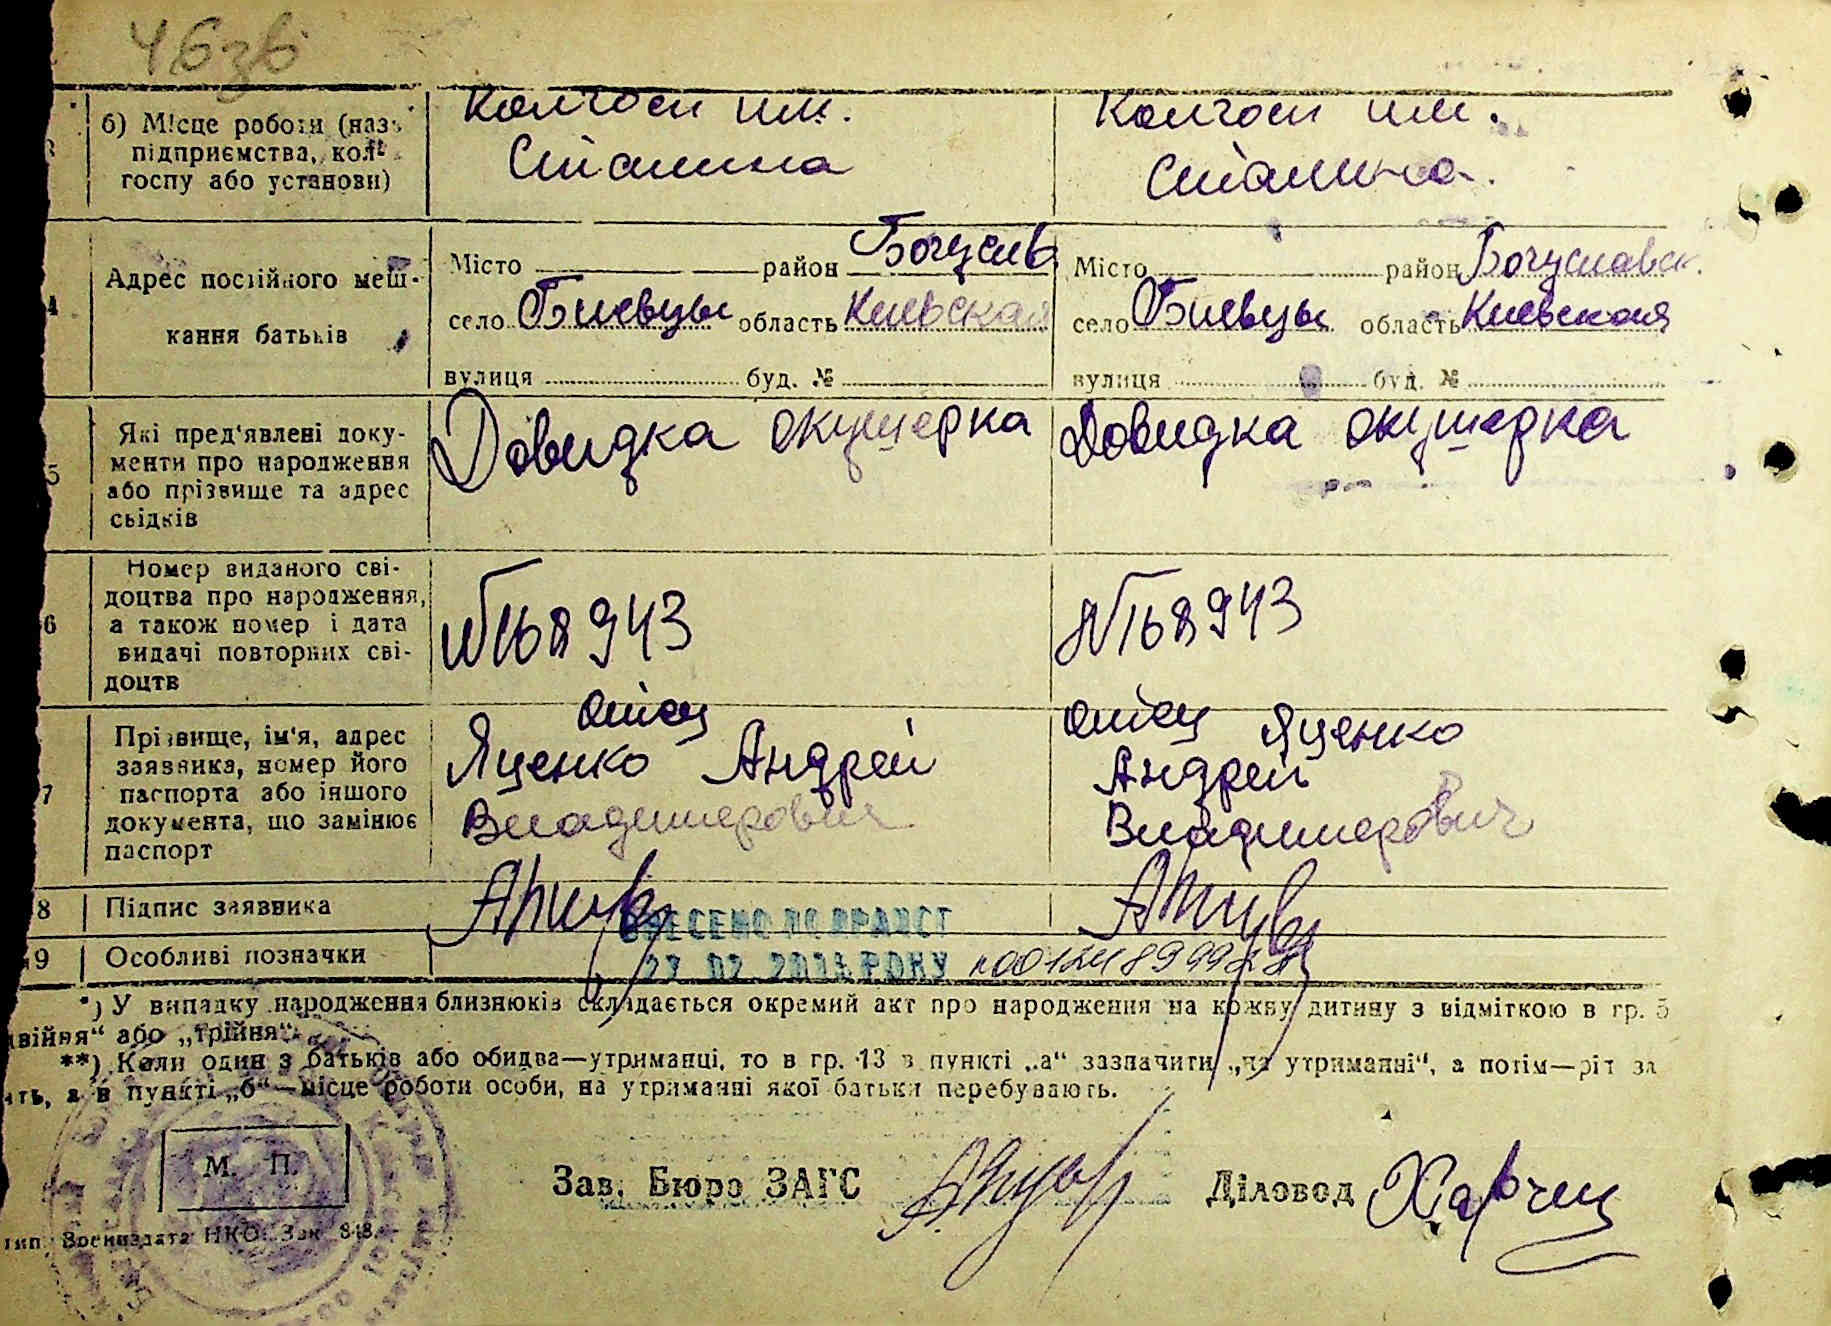 4бзв
б) Місце роботи (назва
підприємства, кол-
госпу або установи)
Колгосп им.
Сталина
Колгосп им.
Сталина.
Адрес постійного меш-
кання батьків
Місто район Богуслав
село Биевцы область Киевская
вулиця буд. №
Місто район Богуславск.
село Биевцы область Киевская
вулиця буд. №
5
Які пред'явлені доку-
менти про народження
або прізвище та адрес
свідків
Довидка окушерка
Довидка окушерка
6
Номер виданого сві-
доцтва про народження,
а також номер і дата
видачі повторних сві-
доцтв
№168943
№168943
7
Прізвище, ім'я, адрес
заявника, номер його
паспорта або іншого
документа, що замінює
паспорт
отец
Яценко Андрей
Владимерович
отец Яценко
Андрей
Владимерович
8 Підпис заявника
9 Особливі позначки
ВНЕСЕНО ДО ДРАЦСГ
РОКУ
*) У випадку народження близнюків складається окремий акт про народження на кожну дитину з відміткою в гр. 5
двійня“ або „трійня“.
**) Коли один з батьків або обидва—утриманці, то в гр. 13 в пункті „а“ зазначити „на утриманні“, а потім—ріт за
ть, а в пункті „б“—місце роботи особи, на утриманні якої батьки перебувають.
М. П.
Зав. Бюро ЗАГС Діловод Харчец
тип. Воениздата НКО. Зак. 848.